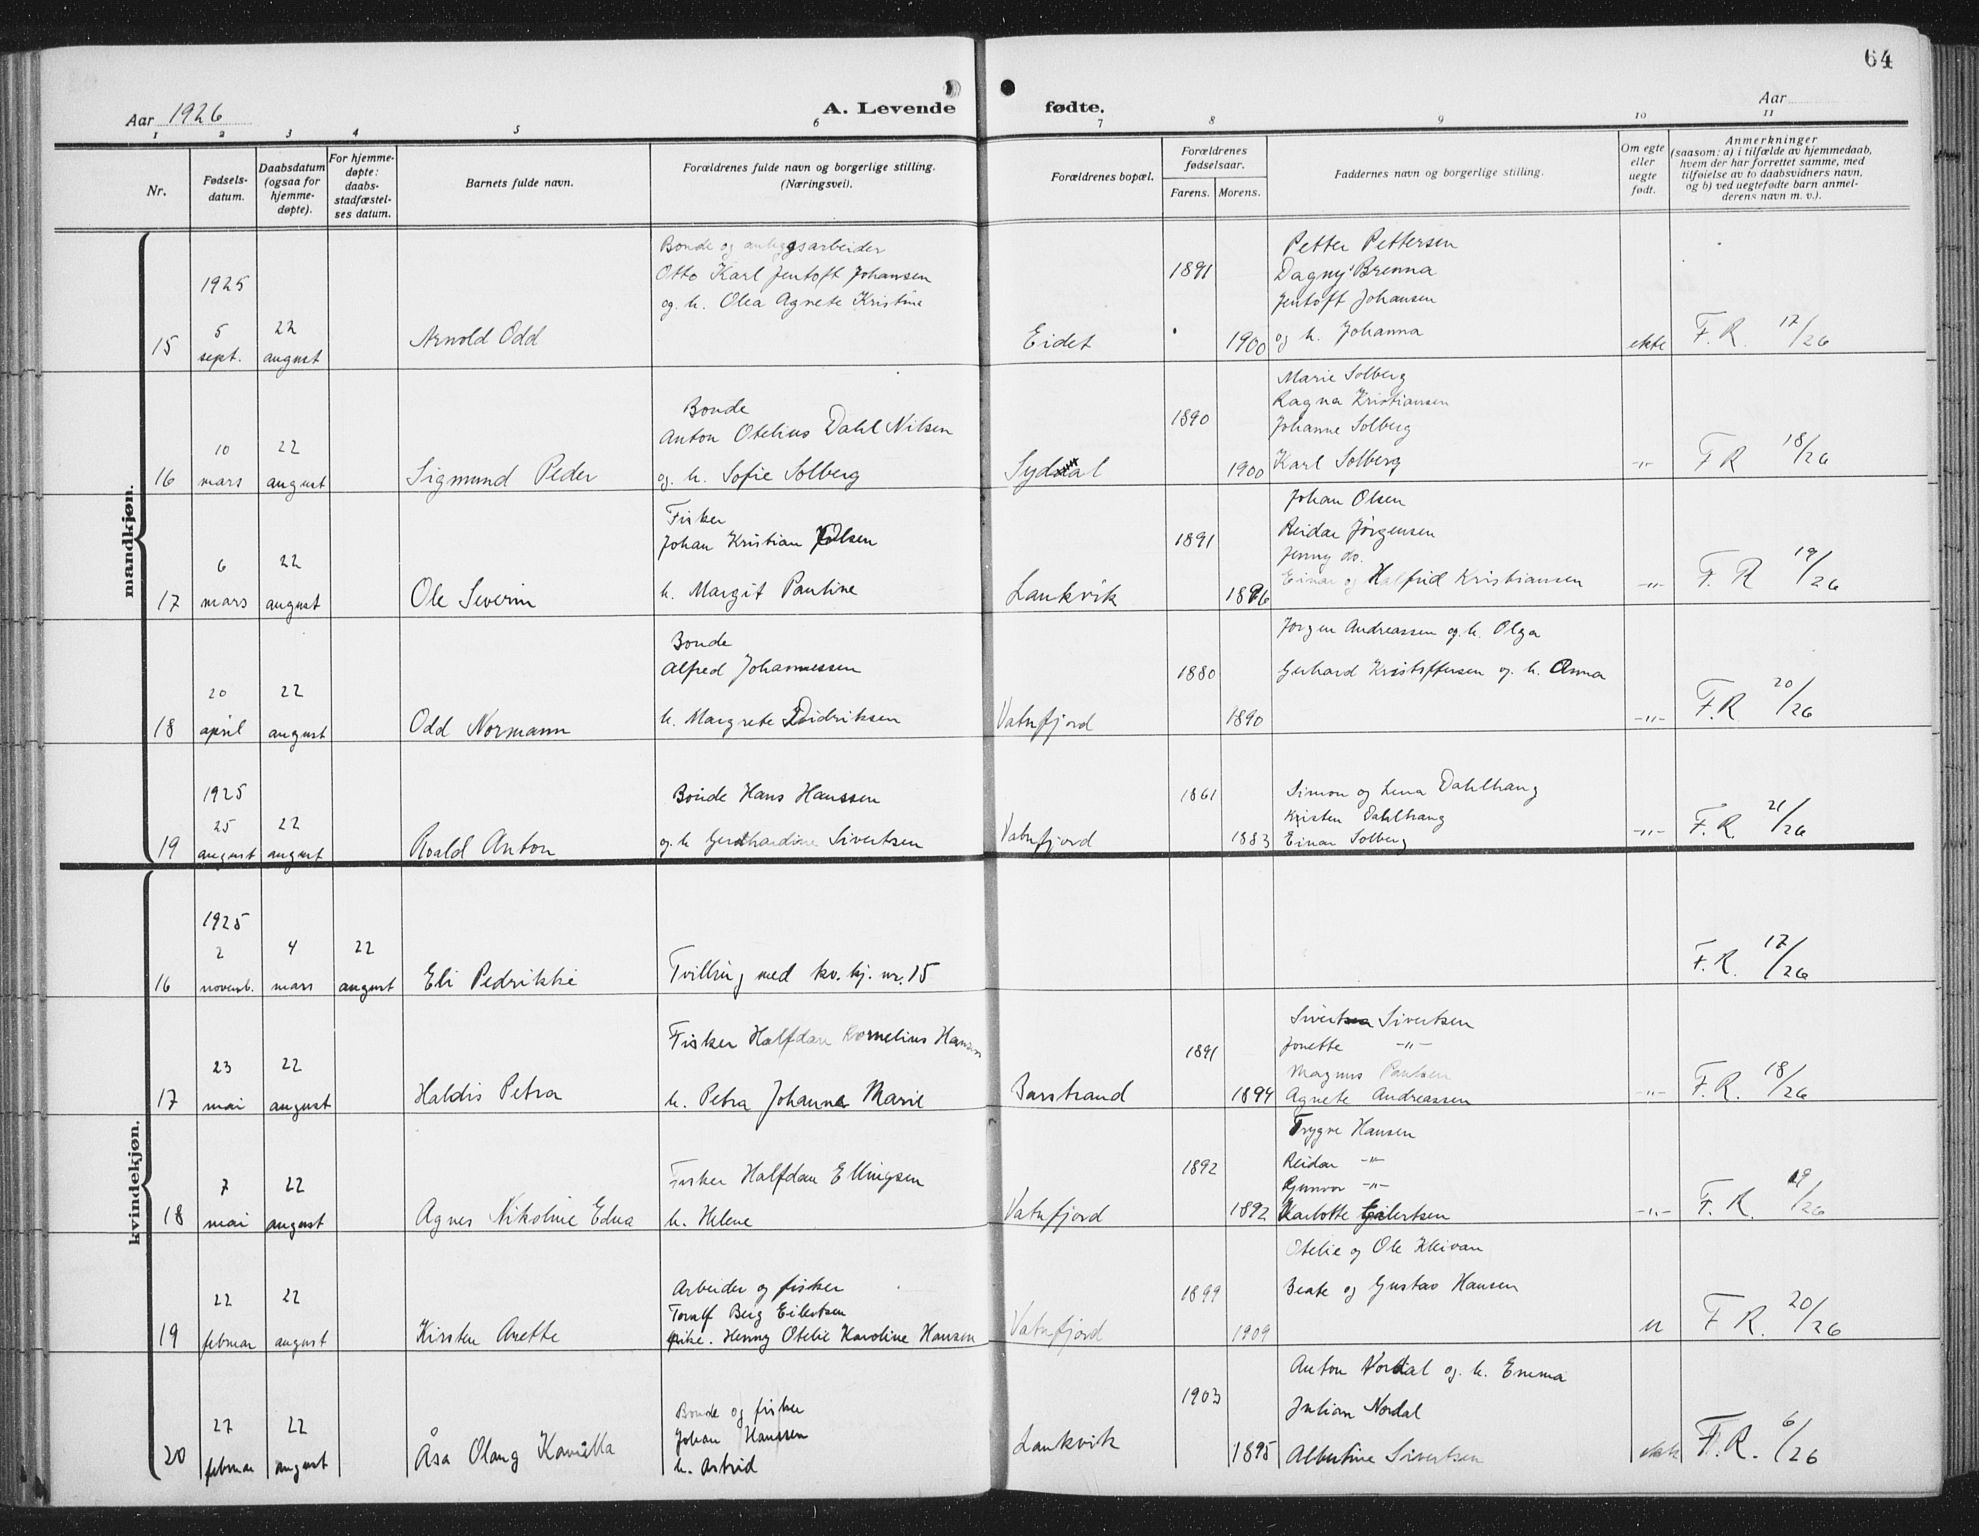 64
Aar 1926
A. Levende fødte.
Aar
1 2 3 4 5 6 7 8 9 10 11
Nr.
Fødsels-
datum.
Daabsdatum
(ogsaa for
hjemme-
døpte).
For hjemme-
døpte:
daabs-
stadfæstel-
ses datum.
Barnets fulde navn.
Forældrenes fulde navn og borgerlige stilling.
(Næringsvei).
Forældrenes bopæl.
Forældrenes
fødselsaar.
Farens. Morens.
Faddernes navn og borgerlige stilling.
Om egte
eller
uegte
født.
Anmerkninger
(saasom: a) i tilfælde av hjemmedaab,
hvem der har forrettet samme, med
tilføielse av to daabsvidners navn,
og b) ved uegtefødte barn anmel-
derens navn m. v.).
mandkjøn.
15
1925
5
sept.
22
august
Arnold Odd
Bonde og anleggsarbeider
Otto Karl Jentoft Johansen
og h. Olea Agnete Kristine
Eidet
1891
1900
Petter Pettersen
Dagny Brenna
Jentoft Johansen
og h. Johanna
ekte
F. R. 17/26
16
10
mars
22
august
Sigmund Peder
Bonde
Anton Otelius Dahl Nilsen
og h. Sofie Solberg
Sydal
1890
1900
Marie Solberg
Ragna Kristiansen
Johanne Solberg
Karl Solberg
-"-
F R 18/26
17
6
mars
22
august
Ole Severin
Fisker
Johan Kristian Olsen
h. Margit Pauline
Laukvik
1891
1896
Johan Olsen
Reidar Jørgensen
Jenny do.
Einar og Halfrid Kristiansen
-"-
F. R 19/26
18
20
april
22
august
Odd Normann
Bonde
Alfred Johannessen
h. Margrete Didriksen
Vatnfjord
1880
1890
Jørgen Andreassen og h. Olga
Gerhard Kristoffersen og h. Anna
-"-
F.R 20/26
19
1925
25
august
22
august
Roald Anton
Bonde Hans Hanssen
og h Gerhardine Sivertsen
Vatnfjord
1861
1883
Simon og Lena Dahlhaug
Kristen Dahlhaug
Einar Solberg
-"-
F. R. 21/26
kvindekjøn.
16
1925
2
novemb.
4
mars
22
august
Eli Pedrikke
Tvilling med kv. kj. nr. 15
F. R. 17/26
17
23
mai
22
august
Haldis Petra
Fisker Halfdan Kornelius Hansen
h. Petra Johanna Marie
Barstrand
1891
1894
Sivert Sivertsen
Jonette -"-
Magnus Paulsen
Agnete Andreassen
-"-
F. R. 18/26
18
7
mai
22
august
Agnes Nikoline Edna
Fisker Halfdan Ellingsen
h. Helene
Vatnfjord
1892
1892
Trygve Hansen
Reidar -"-
Gunvor -"-
Karlotte Eilertsen
-"-
F. R. 19/26
19
22
februar
22
august
Kirsten Anette
Arbeider og fisker
Torulf Berg Eilertsen
pike. Henny Otelie Karoline Hansen
Vatnfjord
1899
1909
Otelie og Ole Kleivan
Beate og Gustav Hansen
u
F R. 20/26
20
27
februar
22
august
Åsa Olaug Kamilla
Bonde og fisker
Johan Hanssen
h. Astrid
Laukvik
1903
1895
Anton Nordal og h. Emma
Julian Nordal
Albertine Sivertsen
ekte
F. R. 6/26